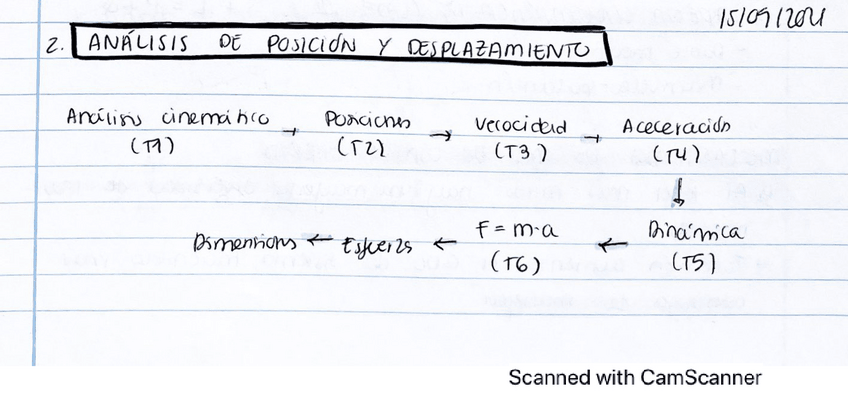 15/09/2021
2. ANÁLISIS DE POSICIÓN Y DESPLAZAMIENTO
Análisis cinemático → Posiciones → Velocidad → Aceleración
(T1) (T2) (T3) (T4)
↓
Dimensions ← Esfuerzo ← F = m·a ← Dinámica
(T6) (T5)
Scanned with CamScanner